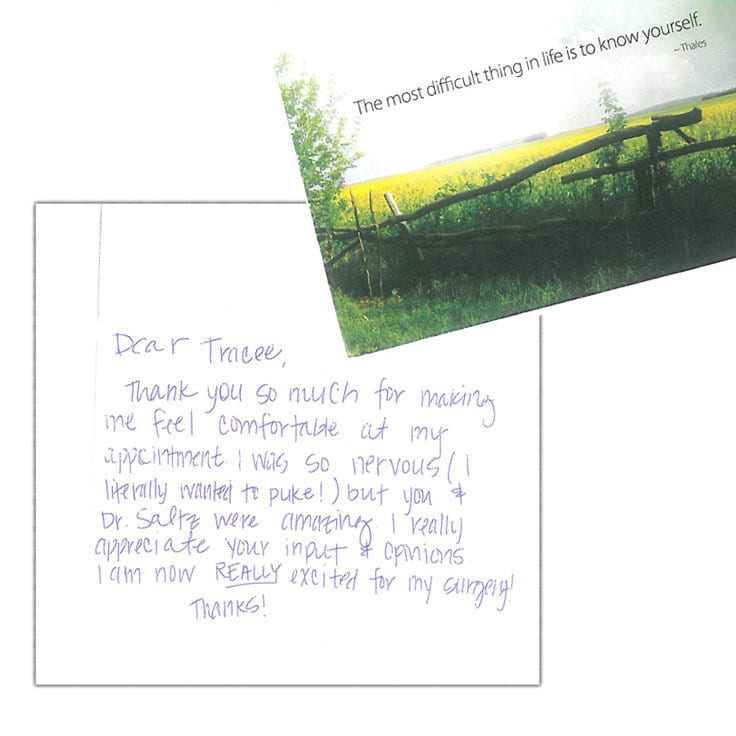 The most difficult thing in life is to know yourself.
~Thales
Dear Tracee,
Thank you so much for making
me feel comfortable at my
appointment. I was so nervous (I
literally wanted to puke!) but you &
Dr. Saltz were amazing. I really
appreciate your input & opinions
I am now REALLY excited for my surgery!
Thanks!